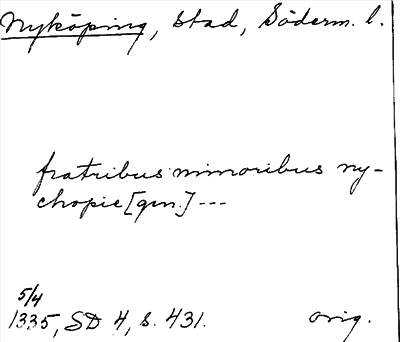 Nyköping, stad, Söderm. l.
fratribus minoribus ny-
chopie [gen.] ---
5/4
1335, SD 4, s. 431. orig.